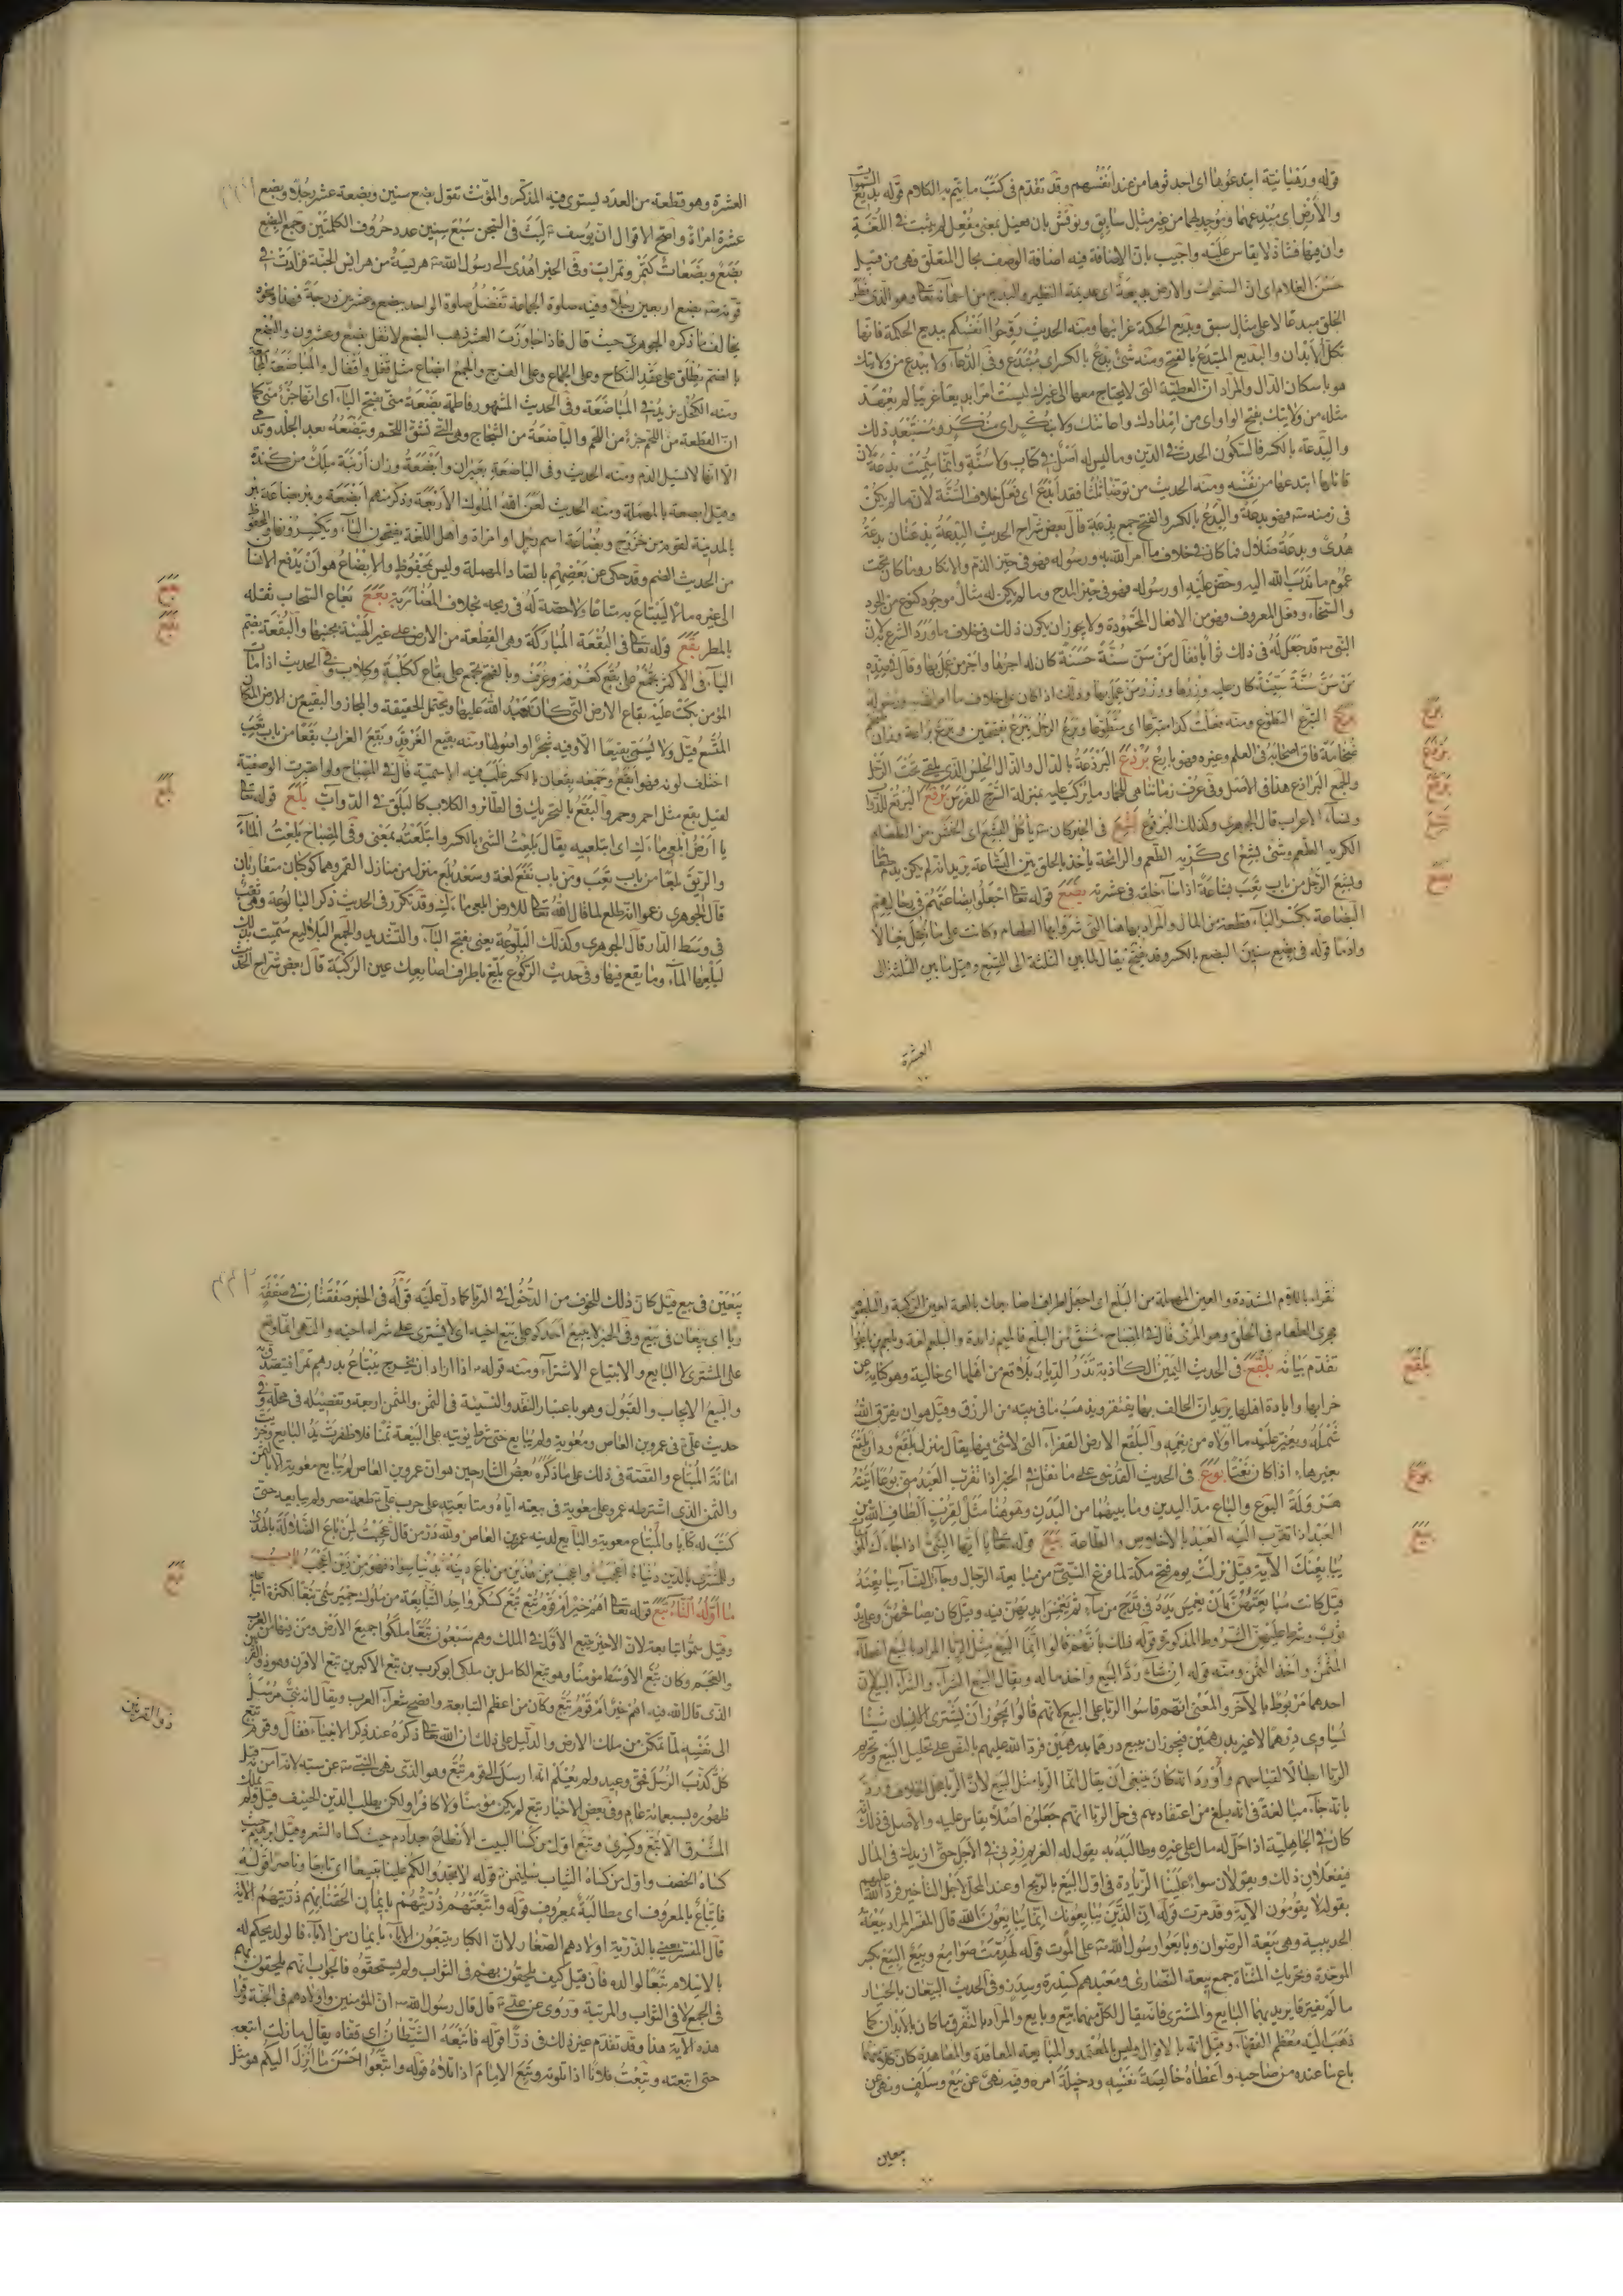 قوله ورهبانية ابتدعوها اى احدثوها من عند انفسهم وقد تقدم فى كتب ما يتم به الكلام قوله بديع السموات
والأرض اى مبدعهما وموجد لهما من غير مثال سابق ونوقش بان فعيل بمعنى مفعل لم يثبت فى اللغة
وان فيها فشاذ لا يقاس عليه واجيب بان الاضافة فيه اضافة الوصف بحال المتعلق وهى من قبيل
حسن الغلام اى ان السموات والارض بديعة اى عديمة النظير والبديع من اسمائه تعالى وهو الذى فطر
الخلق مبدعا لا على مثال سبق وبديع الحكمة غرائبها ومنه الحديث روحوا انفسكم ببديع الحكمة فانها
تكل الأبدان والبديع المبتدع بالفتح ومنه شئ بدع بالكسر اى مبتدع وفى الدعاء ولا ببدع من ولايتك
هو باسكان الدال والمراد ان العطية التى لا يحتاج معها الى غيرك ليست امرا بديعا غريبا لم يعهد
مثله من ولايتك بفتح الواو اى من امدادك واعانتك ولا بنكر اى منكر ومستبعد ذلك
والبدعة بالكسر فالسكون الحدث فى الدين وما ليس له اصل فى كتاب ولا سنة وانما سميت بدعة لان
قائلها ابتدعها من نفسه ومنه الحديث من توضأ ثلثا فقد ابدع اى فعل خلاف السنة لان ما لم يكن
فى زمنه فهو بدعة والبدع بالكسر والفتح جمع بدعة قال بعض شراح الحديث البدعة بدعتان بدعة
هدى وبدعة ضلال فما كان فى خلاف ما امر الله به ورسوله فهو فى حيز الذم والانكار وما كان تحت
عموم ما ندب الله اليه وحض عليه او رسوله فهو فى حيز المدح وما لم يكن له مثال موجود كنوع من الجود
والسخاء وفعل المعروف فهو من الافعال المحمودة ولا يجوز ان يكون ذلك فى خلاف ما ورد الشرع به لان
النبى قد جعل له فى ذلك ثوابا فقال من سن سنة حسنة كان له اجرها واجر من عمل بها وقال فى ضده
من سن سنة سيئة كان عليه وزرها ووزر من عمل بها وذلك اذا كان على خلاف ما امر الله به ورسوله
برع التبرع التطوع ومنه فعلت كذا متبرعا اى متطوعا وبرع الرجل يبرع بفتحتين وبرع براعة وزان ضخم
ضخامة فاق اصحابه فى العلم وغيره فهو بارع بردع البرذعة بالدال والذال الحلس الذى يلقى تحت الرحل
والجمع البراذع هذا فى الاصل وفى عرف زماننا هى للحمار ما يركب عليه بمنزلة السرج للفرس برقع البرقع للدواب
ولنساء الاعراب قال الجوهرى وكذلك البرقوع بشع فى الخبر كان يأكل البشع اى الخشن من الطعام
الكريه الطعم وشئ بشع اى كريه الطعم والرائحة يأخذ بالحلق بين البشاعة يريد انه لم يكن يذم طعاما
وبشع الرجل من باب تعب بشاعة اذا ساء خلقه فى عشرته بضع قوله تعالى اجعلوا بضاعتهم فى رحالهم
البضاعة بكسر الباء قطعة من المال والمراد بها هنا التى شروا بها الطعام وكانت على ما نقل نعالا
وادما قوله فى بضع سنين البضع بالكسر وقد يفتح يقال لما بين الثلثة الى التسع وقيل ما بين الثلثة الى
العشرة
برع
بردع
برقع
بشع
بضع
العشرة وهو قطعة من العدد يستوى فيه المذكر والمؤنث تقول بضع سنين وبضعة عشر رجلا وبضع
عشرة امراة واصح الاقوال ان يوسف لبث فى السجن سبع سنين عدد حروف الكلمتين وجمع البضع
بضع وبضعات كتمر وتمرات وفى الخبر اهدى الى رسول الله هريسة من هرايس الجنة فزادت فى
قوته بضع اربعين رجلا وفيه صلوة الجماعة تفضل صلوة الواحد ببضع وعشرين درجة فهذا ونحوه
يخالف ما ذكره الجوهرى حيث قال فاذا جاوزت العشر ذهب البضع لا تقل بضع وعشرون والبضع
بالضم يطلق على عقد النكاح وعلى الجماع وعلى الفرج والجمع ابضاع مثل قفل واقفال والمباضعة المجامعة
ومنه الكحل يزيد فى المباضعة وفى الحديث المشهور فاطمة بضعة منى بفتح الباء اى انها جزء منى كما
ان القطعة من اللحم جزء من اللحم والباضعة من الشجاج وهى التى تشق اللحم وتبضعه بعد الجلد وتدمى
الا انها لا تسيل الدم ومنه الحديث وفى الباضعة بعيران وابضعة وزان ارنبة ملك من كندة
وقيل ابصعة بالمهملة ومنه الحديث لعن الله الملوك الأربعة وذكر منهم ابضعة وبئر بضاعة بئر
بالمدينة لقوم من خزرج وبضاعة اسم رجل او امراة واهل اللغة يفتحون الباء وتكسرونها والمحفوظ
من الحديث الضم وقد حكى عن بعضهم بالصاد المهملة وليس بمحفوظ والابضاع هو ان يدفع الانسان
الى غيره مالا ليبتاع به متاعا ولا حصة له فى ربحه بخلاف المضاربة بعع بعاع السحاب ثقله
بالمطر بقع قوله تعالى فى البقعة المباركة وهى القطعة من الارض على غير الهيئة بجنبها والبقعة بضم
الباء فى الاكثر يجمع على بقع كغرفة وغرف وبالفتح تجمع على بقاع ككلبة وكلاب وفى الحديث اذا مات
المؤمن بكت عليه بقاع الارض التى كان يعبد الله عليها ويحتمل الحقيقة والمجاز والبقيع من الارض المكان
المتسع قيل ولا يسمى بقيعا الا وفيه شجر او اصولها ومنه بقيع الغرقد وبقع الغراب بقعا من باب تعب
اختلف لونه فهو ابقع وجمعه بقعان بالكسر غلب فيه الاسمية قال فى المصباح ولو اعتبرت الوصفية
لقيل بقع مثل احمر وحمر والبقع بالتحريك فى الطائر والكلاب كالبلق فى الدواب بلع قوله تعالى
يا ارض ابلعى ماءك اى ابتلعيه يقال بلعت الشئ بالكسر وابتلعته بمعنى وفى المصباح بلعت الماء
والريق بلعا من باب تعب ومن باب نفع لغة وسعد بلع منزل من منازل القمر وهما كوكبان متقاربان
قال الجوهرى زعموا انه طلع لما قال الله تعالى للارض ابلعى ماءك وقد تكرر فى الحديث ذكر البالوعة وهى ثقب
فى وسط الدار قال الجوهرى وكذلك البلوعة يعنى بفتح الباء والتشديد والجمع البلاليع سميت بذلك
لبلعها الماء وما يقع فيها وفى حديث الركوع بلع باطراف اصابعك عين الركبة قال بعض شراح الحديث
بعع
بقع
بلع
تقراء باللام المشددة والعين المهملة من البلع اى اجعل اطراف اصابعك بالعة لعين الركبة والبلعوم
مجرى الطعام فى الحلق وهو المرئ قال فى المصباح مشتق من البلع فالميم زائدة والبلعم لغة وبلعم بن باعورا
تقدم بيانه بلقع فى الحديث اليمين الكاذبة تذر الديار بلاقع من اهلها اى خالية وهو كناية عن
خرابها وابادة اهلها يريد ان الحالف بها يفتقر ويذهب ما فى بيته من الرزق وقيل هو ان يفرق الله
شمله ويغير عليه ما اولاه من نعمه والبلقع الارض القفراء التى لا شئ فيها يقال منزل بلقع ودار بلقع
بغير هاء اذا كان نعتا بوع فى الحديث القدسى على ما نقل فى الخبر اذا تقرب العبد منى بوعا اتيته
هرولة البوع والباع مد اليدين وما بينهما من البدن وهو هنا مثل لقرب الطاف الله من
العبد اذا تقرب اليه العبد بالاخلاص والطاعة بيع قوله تعالى يا ايها النبى اذا جاءك المؤمنات
يبايعنك الآية قيل نزلت يوم فتح مكة لما فرغ النبى من مبايعة الرجال وجاء النساء يبايعنه
قيل كانت مبايعتهن بان يغمس يده فى قدح من ماء ثم يغمس ايديهن فيه وقيل كان يصافحهن وعلى يده
ثوب وشرط عليهن الشروط المذكورة قوله ذلك بأنهم قالوا انما البيع مثل الربا المراد بالبيع اعطاء
المثمن واخذ الثمن ومنه قوله ان شاء رد البيع واخذ ماله ويقال البيع الشراء والشراء البيع لان
احدهما مربوط بالآخر والمعنى انهم قاسوا الربا على البيع لانهم قالوا يجوز ان يشترى الانسان شيئا
يساوى درهما لا غير بدرهمين فيجوز ان يبيع درهما بدرهمين فرد الله عليهم بالنص على تحليل البيع وتحريم
الربا ابطالا لقياسهم واورد انه كان ينبغى ان يقال انما الربا مثل البيع لان الربا محل الخلاف ورد
بانه جاء مبالغة فى انه بلغ من اعتقادهم فى حل الربا انهم جعلوه اصلا يقاس عليه والاصل فى ذلك انه
كان فى الجاهلية اذا حل له مال على غيره وطالبه به يقول له الغريم زدنى فى الاجل حتى ازيدك فى المال
فيفعلان ذلك ويقولان سواء علينا الزيادة فى اول البيع بالربح او عند المحل لأجل التأخير فرد الله عليهم
بقوله لا يقومون الآية وقد مرت قوله ان الذين يبايعونك انما يبايعون الله قال المفسر المراد بيعة
الحديبية وهى بيعة الرضوان وبايعوا رسول الله على الموت قوله لهدمت صوامع وبيع البيع بكسر
الموحدة وتحريك المثناة جمع بيعة النصارى ومعبدهم كسدرة وسدر وفى الحديث البيعان بالخيار
ما لم يفترقا يريد بهما البايع والمشترى فانه يقال لكل منهما بيع وبايع والمراد بالتفرق ما كان بالأبدان كما
ذهب اليه معظم الفقهاء وقيل انه بالاقوال وليس بالمعتمد والمبايعة المعاقدة والمعاهدة كان كلا منهما
باع ما عنده من صاحبه واعطاه خالصة نفسه ودخيلة امره وفيه نهى عن بيع وسلف ونهى عن
بيعين
بلقع
بوع
بيع
بيعين فى بيع قيل كان ذلك للخوف من الدخول فى الربا كما دل عليه قوله فى الخبر صفقتان فى صفقة
ربا اى بيعان فى بيع وفى الخبر لا يبيع احدكم على بيع اخيه اى لا يشترى على شراء اخيه والنهى انما وقع
على المشترى لا البايع والابتياع الاشتراء ومنه قوله اذا اراد ان يخرج يبتاع بدرهم تمرا فيتصدق به
والبيع الايجاب والقبول وهو باعتبار النقد والنسيئة فى الثمن والمثمن اربعة وتفصيله فى محله وفى
حديث على فى عمرو بن العاص ومعوية ولم يبايع حتى شرط ان يؤتيه على البيعة ثمنا فلا ظفرت يد البايع وخزيت
امانة المبتاع والقصة فى ذلك على ما ذكره بعض الشارحين هو ان عمرو بن العاص لم يبايع معوية الا بالثمن
والثمن الذى اشترطه عمرو على معوية فى بيعته اياه ومتابعته على حرب على طعمة مصر ولم يبايعه حتى
كتب له كتابا والمبتاع معوية والبايع لدينه عمرو بن العاص ولله در من قال عجبت لمن باع الضلالة بالهدى
وللمشترى بالدين دنياه اعجب واعجب من هذين من باع دينه بدنيا سواه فهو من ذين اعجب باب
ما اوله التاء تبع قوله تعالى اهم خير ام قوم تبع تبع كسكر واحد التبابعة من ملوك حمير سمى تبعا لكثرة اتباعه
وقيل سموا تبابعة لان الاخير يتبع الاول فى الملك وهم سبعون تبعا ملكوا جميع الأرض ومن فيها من العرب
والعجم وكان تبع الاوسط مؤمنا وهو تبع الكامل بن ملكى ابو كرب بن تبع الاكبر بن تبع الاقرن وهو ذو القرنين
الذى قال الله فيه اهم خير ام قوم تبع وكان من اعظم التبابعة وافصح شعراء العرب ويقال انه نبى مرسل
الى نفسه لما تمكن من ملك الارض والدليل على ذلك ان الله تعالى ذكره عند ذكر الانبياء فقال وقوم تبع
كل كذب الرسل فحق وعيد ولم يعلم انه ارسل الى قوم تبع وهو الذى نهى النبى عن سبه لانه آمن به قبل
ظهوره بسبعمائة عام وفى بعض الاخبار تبع لم يكن مؤمنا ولا كافرا ولكن يطلب الدين الحنيف قيل ولم يملك
المشرق الا تبع وكسرى وتبع اول من كسا البيت الأنطاع بعد آدم حيث كساه الشعر وقيل ابرهيم حيث
كساه الخصف واول من كساه الثياب سليمن قوله لا تجدوا لكم علينا تبيعا اى تابعا وناصرا قوله
فاتباع بالمعروف اى مطالبة بمعروف قوله واتبعتهم ذريتهم بايمان الحقنا بهم ذريتهم الآية
قال المفسر يعنى بالذرية اولادهم الصغار لان الكبار يتبعون الاباء بايمان من الاباء فالولد يحكم له
بالاسلام تبعا لوالده فان قيل كيف يلحقون بهم فى الثواب ولم يستحقوه فالجواب انهم يلحقون بهم
فى الجمع لا فى الثواب والمرتبة وروى عن على قال قال رسول الله ان المؤمنين واولادهم فى الجنة وقرأ
هذه الآية هذا وقد تقدم غير ذلك فى ذرأ قوله فاتبعه الشيطان اى قفاه يقال ما زلت اتبعه
حتى اتبعته وتبعت فلانا اذا تلوته وتبع الامام اذا تلاه قوله واتبعوا احسن ما انزل اليكم هو مثل
تبع
ذو القرنين